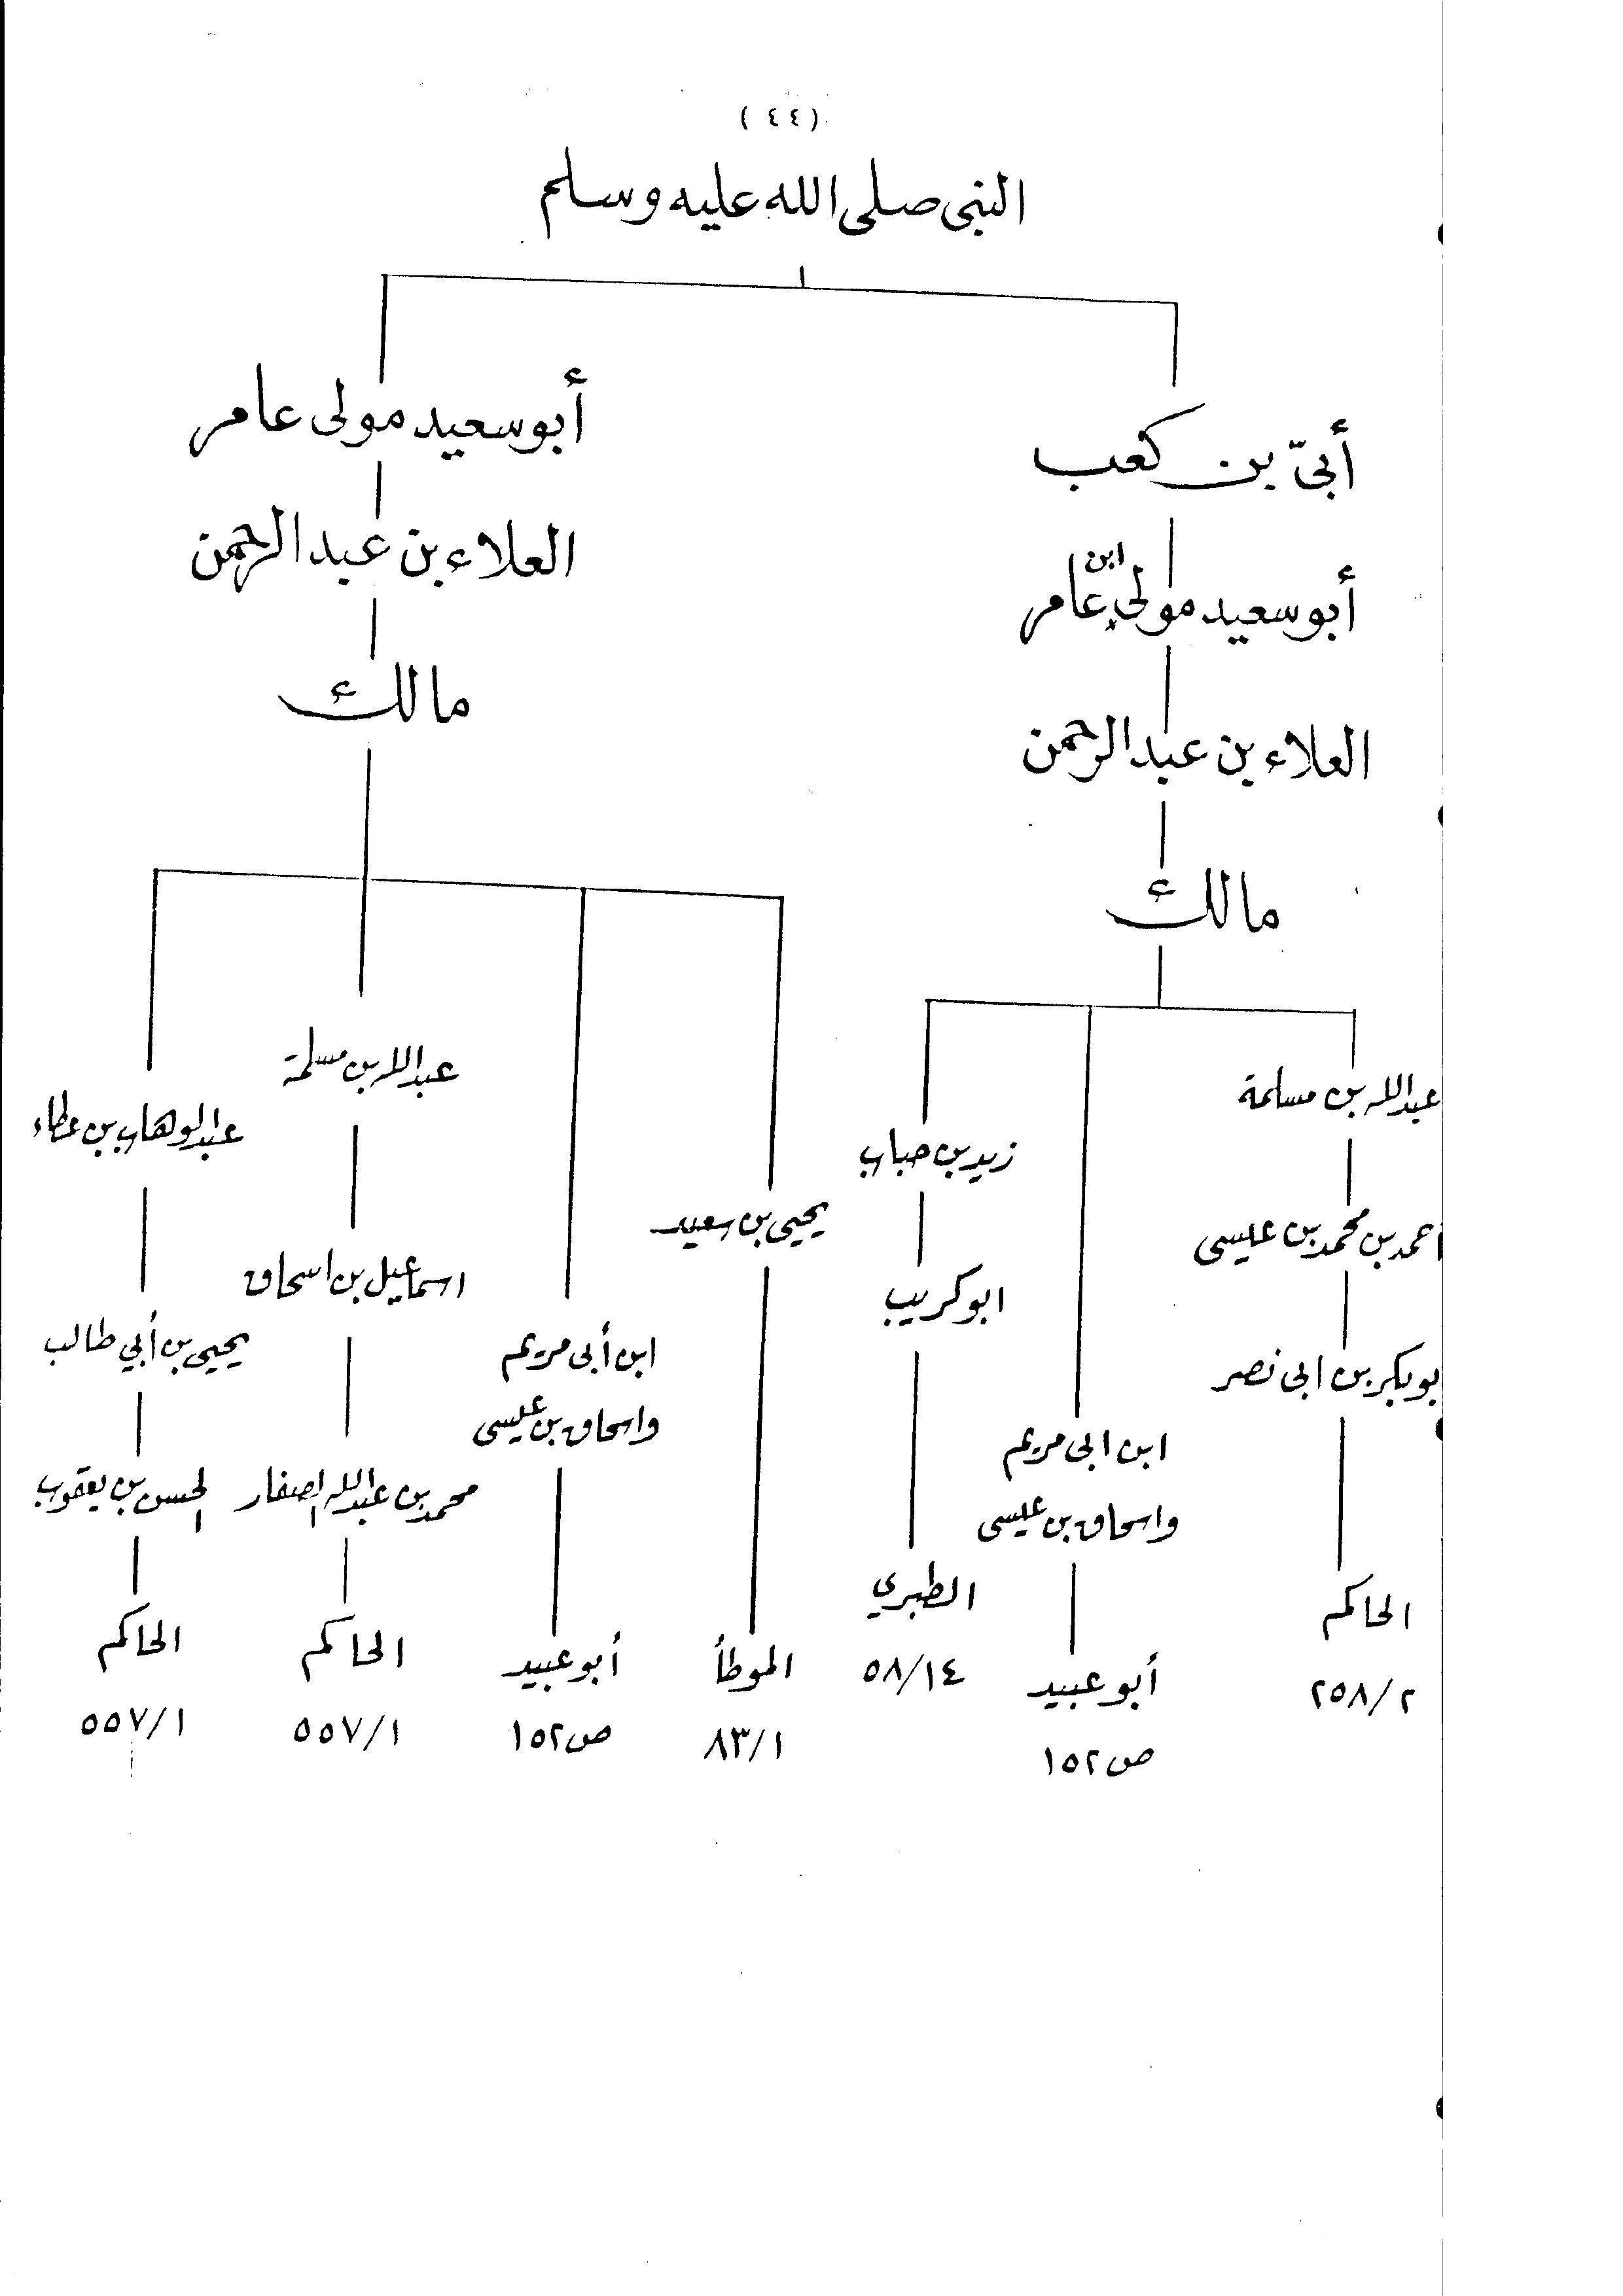 (٤٤)
النبى صلى الله عليه وسلم
أبىّ بن كعب
أبو سعيد مولى ابن عامر
العلاء بن عبد الرحمن
مالك
عبد الله بن مسلمة
احمد بن محمد بن عيسى
بو بكر بن ابى نصر
الحاكم
٢٥٨/٢
ابن ابى مريم
واسحاق بن عيسى
أبو عبيد
ص ١٥٢
زيد بن حباب
ابو كريب
الطبري
٥٨/١٤
أبو سعيد مولى عامر
العلاء بن عبد الرحمن
مالك
يحيى بن سعيد
الموطأ
٨٣/١
ابن أبى مريم
واسحاق بن عيسى
أبو عبيد
ص ١٥٢
عبد الله بن مسلمة
اسماعيل بن اسحاق
محمد بن عبد الله الصفار
الحاكم
٥٥٧/١
عبد الوهاب بن عطاء
يحيى بن أبي طالب
الحسن بن يعقوب
الحاكم
٥٥٧/١